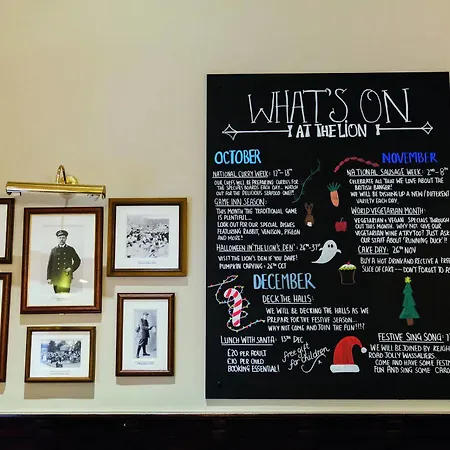 WHAT'S ON
AT THE LION
OCTOBER
NATIONAL CURRY WEEK: 12TH-18TH
OUR CHEFS WILL BE PREPARING CURRIES FOR
THE SPECIALS BOARDS EACH DAY, WATCH
OUT FOR THE DELICIOUS SEAFOOD ONE!!
GAME INN SEASON:
THIS MONTH THE TRADITIONAL GAME
IS PLENTIFUL...
LOOK OUT FOR OUR SPECIAL DISHES
FEATURING RABBIT, VENISON, PIGEON
AND MORE!
HALLOWEEN IN 'THE LION'S DEN': 26TH-31ST
VISIT THE LION'S DEN IF YOU DARE!
PUMPKIN CARVING: 26TH OCT
NOVEMBER
NATIONAL SAUSAGE WEEK: 2ND-8TH
CELEBRATE ALL THAT WE LOVE ABOUT THE
BRITISH BANGER!
WE WILL BE DISHING UP A NEW / DIFFERENT
VARIETY EACH DAY.
WORLD VEGETARIAN MONTH:
VEGETARIAN + VEGAN SPECIALS THROUGH
OUT THIS MONTH. WHY NOT GIVE OUR
VEGETARIAN WINE A TRY TOO? JUST ASK
OUR STAFF ABOUT "RUNNING DUCK"!!
CAKE DAY: 26TH NOV
BUY A HOT DRINK AND RECEIVE A FREE
SLICE OF CAKE --- DON'T FORGET TO AS
DECEMBER
DECK THE HALLS:
WE WILL BE DECKING THE HALLS AS WE
PREPARE FOR THE FESTIVE SEASON...
WHY NOT COME AND JOIN THE FUN!!!!
LUNCH WITH SANTA: 13TH DEC
£20 PER ADULT
£10 PER CHILD
BOOKING ESSENTIAL!
free gift
for children
FESTIVE SING SONG: 1
WE WILL BE JOINED BY KEIGH
ROAD JOLLY WASSAILERS.
COME AND HAVE SOME FEST
FUN AND SING SOME CARO